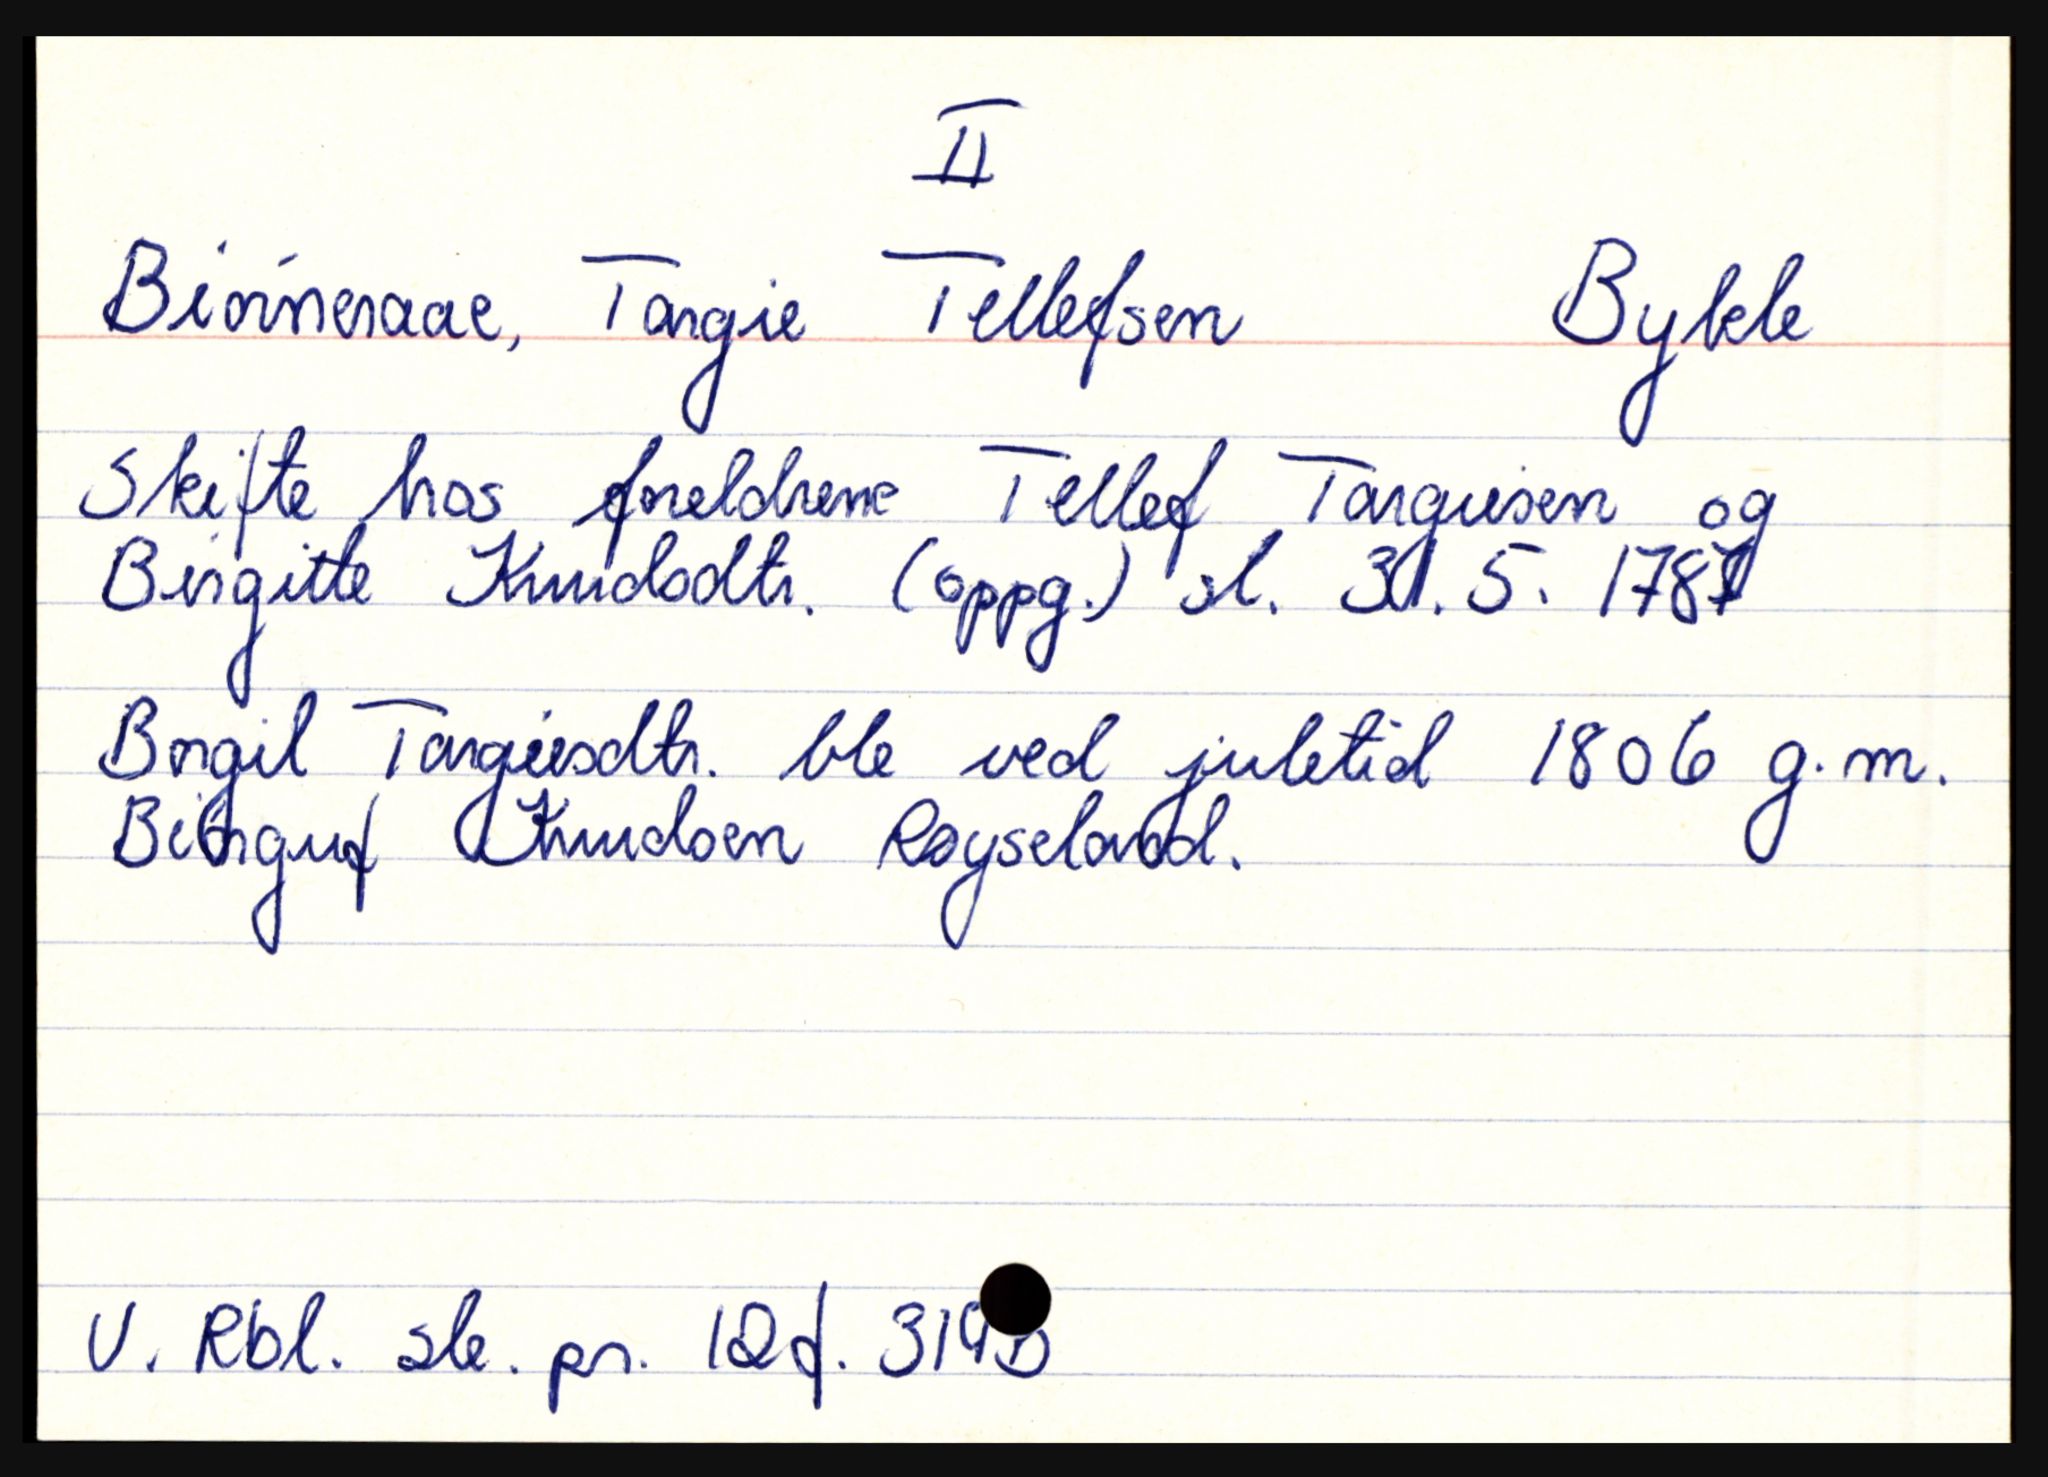 II
Biørneraae, Targie Tellefsen Bykle
Skifte hos foreldrene Tellef Targiesen og
Birgitte Knudsdtr. (oppg.) sl. 31.5. 1787
Borgil Targiesdtr. ble ved juletid 1806 g.m.
Knudsen Røyseland.
V. Rbl. sk. pr. 12 f. 319 b